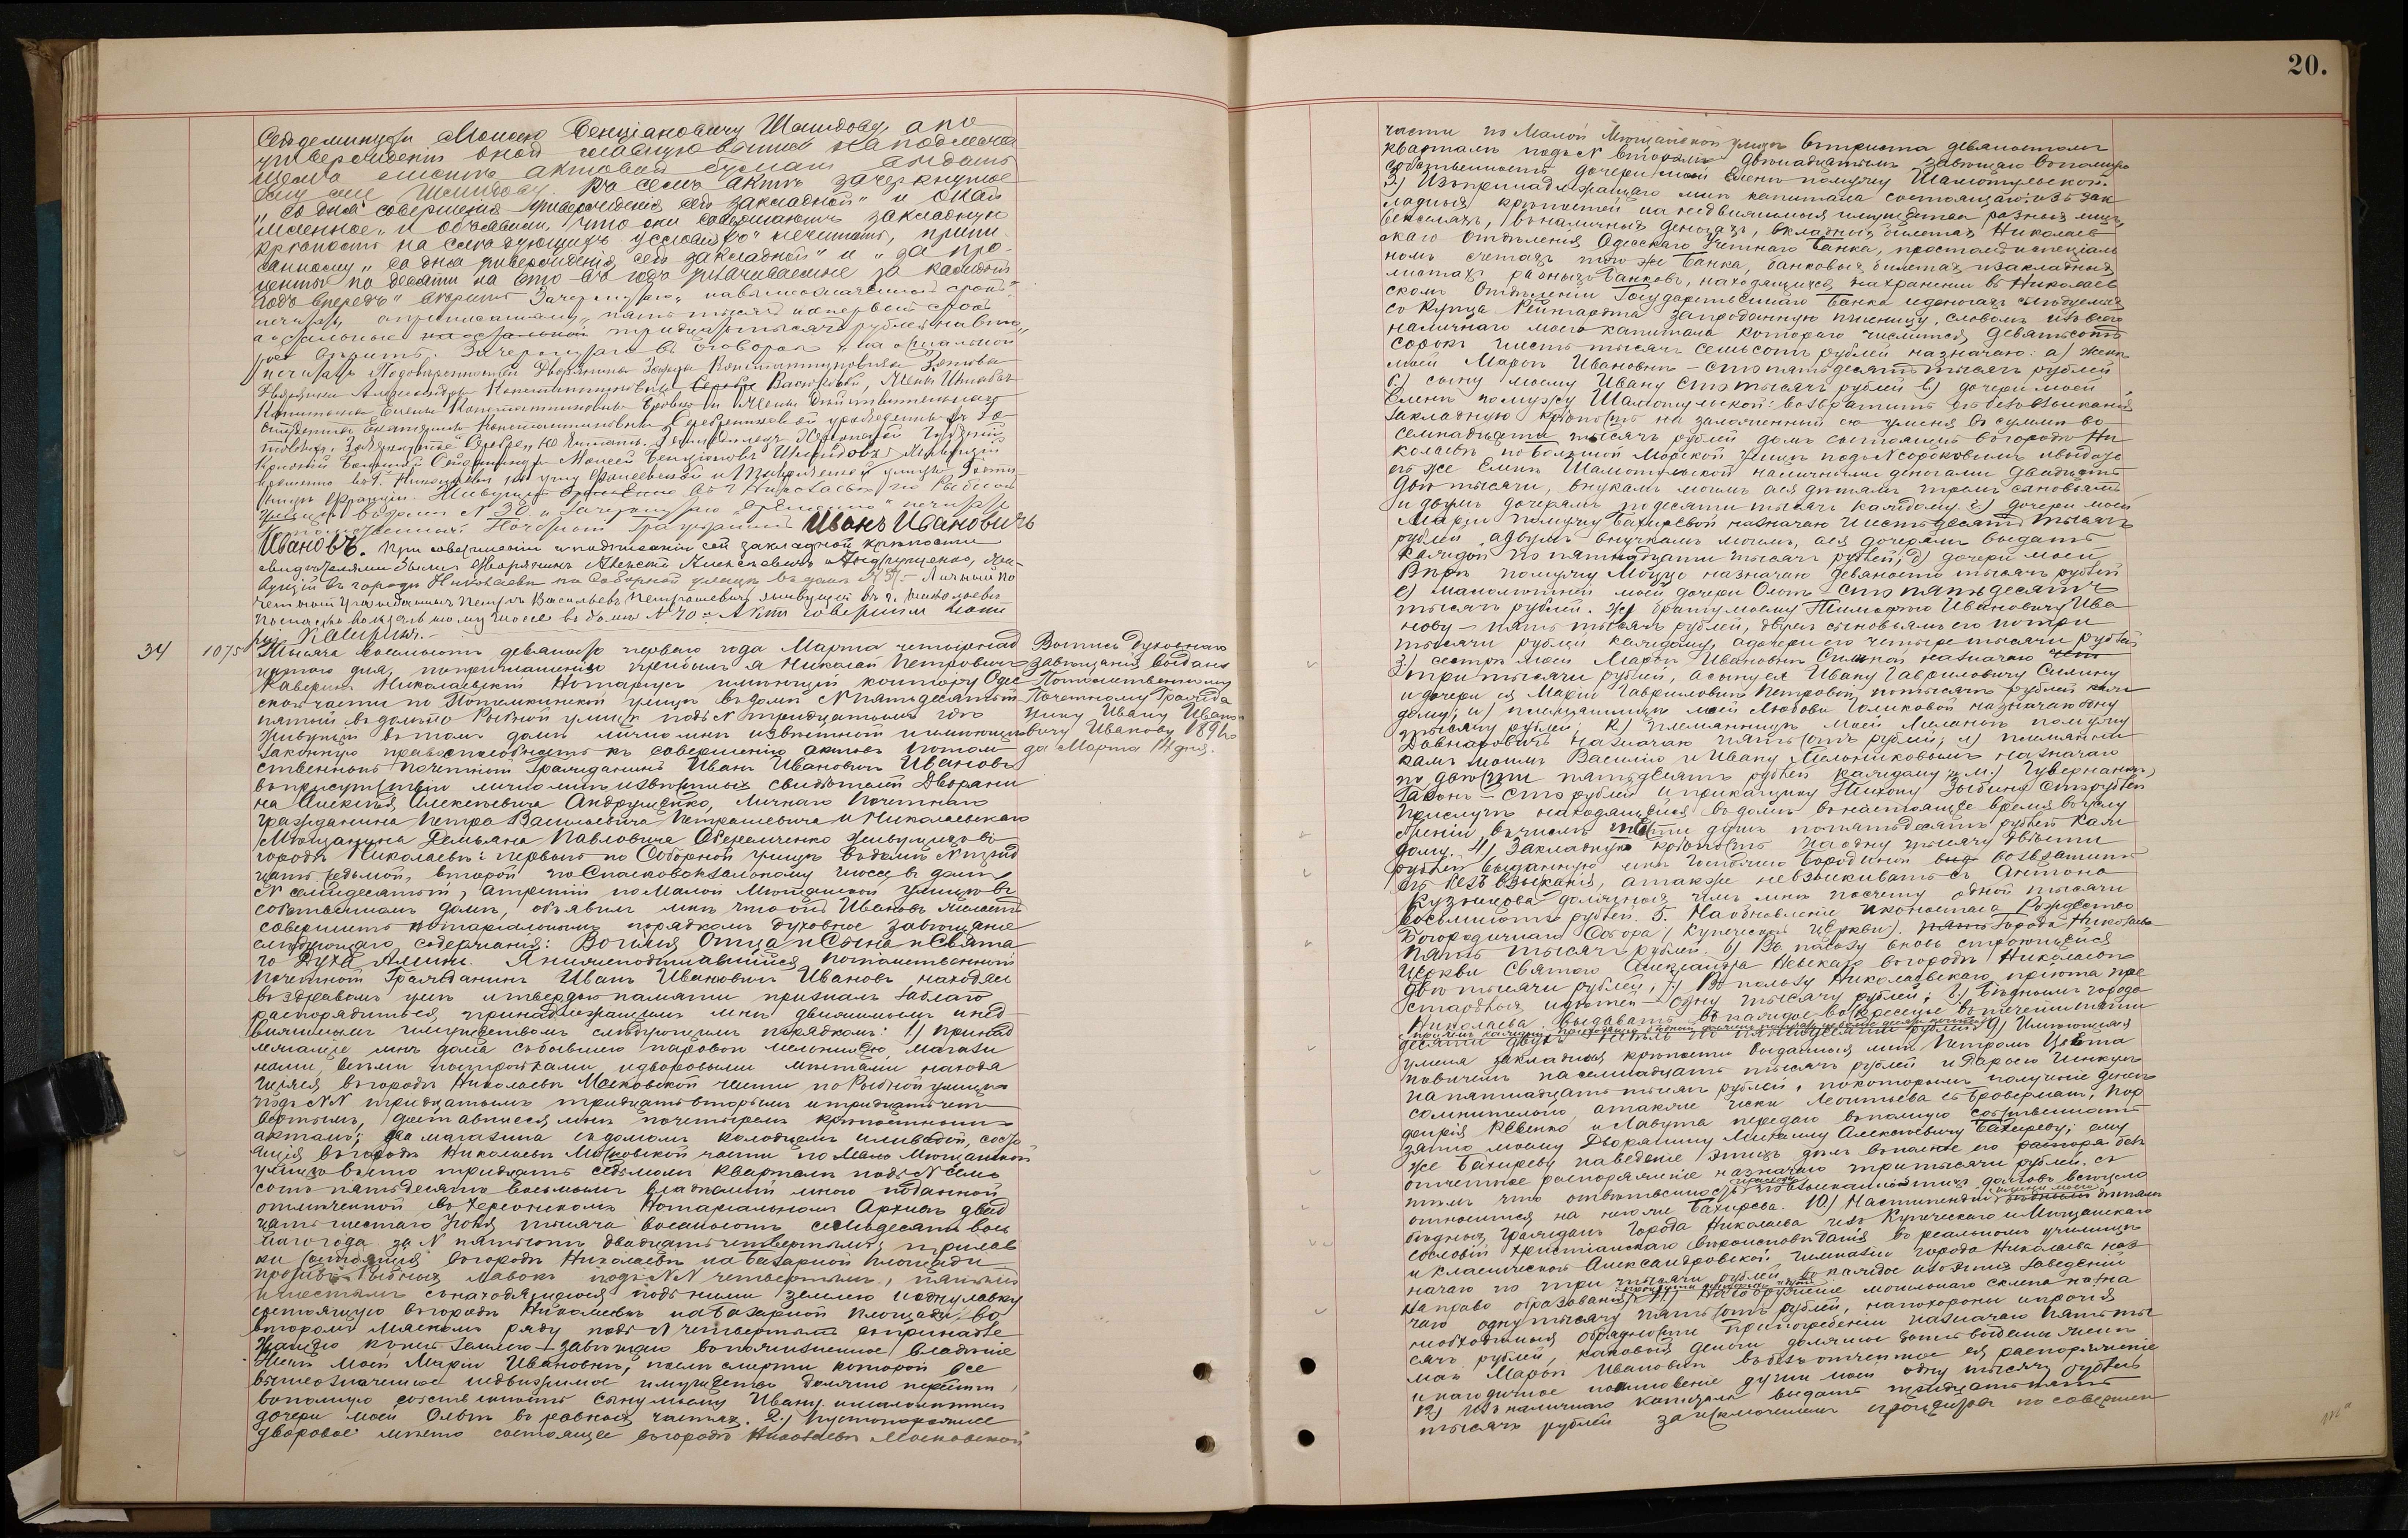 20.
Сендеминцефи Моисею Бенціановичу Шмидову, а по
утвержденіи оной главную выпись на подлежа
щемъ листѣ актовой бумаги выдать
ему же Шмидову. Въ семъ актѣ зачеркнутое
„со дня совершенія утвержденія сей закладной" и
и объявили, что они совершаютъ закладную
крѣпость на слѣдующихъ условіяхъ" не читать, припи
санному „со дня утвержденія сей закладной" и „за про
центы по десяти на сто въ годъ уплачиваемые за каждый
годъ впередъ" вѣрить.
тридцать тысячъ рублей
вѣрить. Зачеркнутаго въ оговоркѣ
не читать. По довѣренности Дворянина Захара Константиновича
Дворянки Александры Константиновны Васюковой, Жены Штабсъ
Капитана Елены Константиновны и Жены Дѣйствительнаго
Екатерины Константиновны Серебрениковой урожденныхъ
не читать. Херсонской Губерніи
Моисей Бенціоновъ Шмидовъ Живущій
временно въ г. Николаевѣ на углу Фалеевской и улицы
Живущій въ г. Николаевѣ по Рыбной
улицѣ въ домѣ № 30. и Зачеркнутаго „временно" не читать
Потомственный Почетный Гражданинъ Иванъ Ивановичъ
Ивановъ. При совершеніи и подписаніи сей закладной крѣпости
свидѣтелями были: Дворянинъ Алексѣй Алексѣевичъ Андрущенко, жи
вущій въ городѣ Николаевѣ по Соборной улицѣ въ домѣ № 37.- Личный по
четный гражданинъ Петръ Васильевъ Петрашевичъ живущій въ г. Николаевѣ
по Спасковокзальному шоссе въ домѣ № 70.- Актъ совершилъ Нота
ріусъ Каверинъ.-
34
1075
Тысяча восемьсотъ девяносто перваго года Марта четырнад
цатаго дня, по приглашенію прибылъ я Николай Петровичъ
Каверинъ Николаевскій Нотаріусъ имѣющій контору Одес
ской части по Потемкинской улицѣ въ домѣ № пятьдесятъ
пятый въ домъ по Рыбной улицѣ подъ № тридцатымъ гдѣ
живущій въ томъ домѣ лично мнѣ извѣстный и имѣющій
законную правоспособность къ совершенію актовъ Потом
ственный почетный Гражданинъ Иванъ Ивановичъ Ивановъ
въ присутствіи лично мнѣ извѣстныхъ свидѣтелей Дворяни
на Алексѣя Алексѣевича Андрущенко, Личнаго Почетнаго
гражданина Петра Васильевича Петрашевича и Николаевскаго
Мѣщанина Демьяна Павловича Обремченко живущихъ въ
городѣ Николаевѣ: первый по Соборной улицѣ въ домѣ № трид
цать седьмой, второй по Спасковокзальному шоссе въ домѣ
№ семидесятый, а третій по Малой Мѣщанской улицѣ въ
собственномъ домѣ, объявилъ мнѣ что онъ Ивановъ желаетъ
совершить нотаріальнымъ порядкомъ духовное завѣщаніе
слѣдующаго содержанія: Во имя Отца и Сына и Свята
го Духа Аминь. Я нижеподписавшійся потомственный
почетный Гражданинъ Иванъ Ивановичъ Ивановъ находясь
въ здравомъ умѣ и твердой памяти призналъ за благо
распорядиться принадлежащимъ мнѣ движимымъ и нед
вижимымъ имуществомъ слѣдующимъ порядкомъ: 1) принад
лежащіе мнѣ дома съ бывшею паровою мельницею, магази
нами, всѣми постройками и дворовыми мѣстами находя
щіеся въ городѣ Николаевѣ Московской части по Рыбной улицѣ
подъ №№ тридцатымъ тридцать вторымъ и тридцать чет
вертымъ, доставшіеся мнѣ по четыремъ крѣпостнымъ
актамъ; два магазина съ домомъ колодцемъ и левадой, состо
ящія въ городѣ Николаевѣ Московской части по Мало Мѣщанской
улицѣ въ сто тридцать седьмомъ кварталѣ подъ № семь
сотъ пятьдесятъ восьмымъ владѣемый мною по данной
отмѣченной въ Херсонскомъ Нотаріальномъ Архивѣ двад
цать шестаго Іюня тысяча восемьсотъ семьдесятъ вось
маго года за № пятьсотъ двадцать четвертымъ; три лав
ки состоящія въ городѣ Николаевѣ на Базарной площади
противъ Рыбныхъ лавокъ подъ №№ четвертымъ, пятымъ
и шестымъ съ находящеюся подъ ними землею и одну лавку
состоящую въ городѣ Николаевѣ на Базарной площади, во
второмъ Мясномъ ряду подъ № четвертымъ съ принадле
жащею къ ней землею завѣщаю въ пожизненное владѣніе
Женѣ моей Маріи Ивановнѣ, послѣ смерти которой все
вышеозначенное недвижимое имущество должно перейти
въ полную собственность сыну моему Ивану и малолѣтней
дочери моей Ольгѣ въ равныхъ частяхъ. 2) Пустопорожнее
дворовое мѣсто состоящее въ городѣ Николаевѣ Московской
Выпись духовнаго
завѣщанія выдана
Потомственному
Почетному Гражда
нину Ивану Ивано
вичу Иванову 1891 го
да Марта 14 дня.
части по Малой Мѣщанской улицѣ въ триста девяностомъ
кварталѣ подъ № вторымъ двѣнадцатымъ завѣщаю въ полную
собственность дочери моей Еленѣ по мужу Шамотульской.
3) Изъ принадлежащаго мнѣ капитала состоящаго: изъ зак
ладныхъ крѣпостей на недвижимыя имущества разныхъ лицъ,
векселяхъ, въ наличныхъ деньгахъ, вкладныхъ билетахъ Николаев
скаго Отдѣленія Одесскаго Учетнаго Банка, простомъ и спеціаль
номъ счетахъ того же Банка, банковыхъ билетахъ и закладныхъ
листахъ разныхъ Банковъ, находящихся на храненіи въ Николаев
скомъ Отдѣленіи Государственнаго Банка и деньгахъ слѣдуемыхъ
со Купца Рейнгардта за проданную пшеницу, словомъ изъ всего
наличнаго моего капитала котораго числится девятьсотъ
сорокъ шесть тысячъ семьсотъ рублей назначаю: а) женѣ
моей Маріи Ивановнѣ - сто пятьдесятъ тысячъ рублей
б) сыну моему Ивану сто тысячъ рублей в) дочери моей
Еленѣ по мужу Шамотульской: возвратить ей безъ взысканія
закладную крѣпость на заложенный ею у меня въ суммѣ во
семнадцати тысячъ рублей домъ состоящій въ городѣ Ни
колаевѣ по Большой Морской улицѣ подъ № сороковымъ и выдать
ей же Еленѣ Шамотульской наличными деньгами двадцать
двѣ тысячи, внукамъ моимъ а ея дѣтямъ тремъ сыновьямъ
и двумъ дочерямъ по десяти тысячъ каждому. г) дочери моей
Маріи по мужу Бахиревой назначаю шестьдесятъ тысячъ
рублей, а двумъ внучкамъ моимъ, а ея дочерямъ выдать
каждой по пятнадцати тысячъ рублей, д) дочери моей
Вѣрѣ по мужу Моцуо назначаю девяносто тысячъ рублей
е) малолѣтней моей дочери Ольгѣ сто пятьдесятъ
тысячъ рублей. ж) брату моему Тимофею Ивановичу Ива
нову - пять тысячъ рублей, двумъ сыновьямъ его по три
тысячи рублей каждому, а дочери его четыре тысячи рублей
з) сестрѣ моей Маріи Ивановнѣ Силиной назначаю
три тысячи рублей, а сыну ея Ивану Гавриловичу Силину
и дочери ея Маріи Гавриловнѣ Петровой, по тысячѣ рублей каж
дому; и) племянницѣ моей Любови Голиковой назначаю одну
тысячу рублей; к) племянницѣ моей Меланіи по мужу
Довнаровичъ назначаю пятьсотъ рублей; л) племянни
камъ моимъ Василію и Ивану Мельниковымъ назначаю
по двѣсти пятьдесятъ рублей каждому и м) Гувернанткѣ
Габонъ - сто рублей и приказчику Тихону Зыбину сто рублей
Прислугѣ находящейся въ домѣ въ настоящее время въ услу
женіи, въ числѣ шести душъ по пятьдесятъ рублей каж
дому. 4) Закладную крѣпость на одну тысячу двѣсти
рублей выданную мнѣ Бородиной возвратить
ей безъ взысканія, а также не взыскивать съ Антона
Кузнецова должныхъ имъ мнѣ по счету одной тысячи
восьмисотъ рублей. 5. На обновленіе иконостаса Рождество
Богородичнаго Собора (Купеческой церкви) Города Николаева
пять тысячъ рублей. 6) Въ пользу вновь строющейся
Церкви Святаго Александра Невскаго въ городѣ Николаевѣ
двѣ тысячи рублей, 7) Въ пользу Николаевскаго пріюта пре
старѣлыхъ и дѣтей - одну тысячу рублей; 8) Бѣднымъ города
Николаева выдавать въ каждое воскресенье въ теченіи пяти
десяти двухъ недѣль по рублей. 9) Имѣющіяся
у меня закладныя крѣпости выданныя мнѣ Петромъ
повичемъ на семнадцать тысячъ рублей и Дарьею Чинкул
на пятнадцать тысячъ рублей, по которымъ полученіе денегъ
сомнительно, а также иски Леонтьева съ Бровермана, Пор
фирія Рѣвенко и Лавута передаю въ полную собственность
зятю моему Дворянину Михаилу Алексѣевичу Бахиреву; ему
же Бахиреву на веденіе этихъ дѣлъ въ полное его безъ
отчетное распоряженіе назначаю три тысячи рублей. съ
тѣмъ что отвѣтственность по взысканію этихъ долговъ всецѣло
относится на него же Бахирева. 10) На стипендіи дѣтямъ
бѣдныхъ гражданъ Города Николаева изъ Купеческаго и Мѣщанскаго
сословій христіанскаго вѣроисповѣданія въ реальномъ училищѣ
и класической Александровской гимназіи города Николаева наз
начаю по три тысячи рублей въ каждое изъ этихъ заведеній
на право образованія. 11) На сооруженіе могильнаго склепа назна
чаю одну тысячу пятьсотъ рублей, на похороны и прочія
необходимыя обрядности при погребеніи назначаю пять ты
сячъ рублей, каковыя деньги должны быть выданы женѣ
моей Маріи Ивановнѣ въ безъотчетное ея распоряженіе
и на годичное поминовеніе души моей одну тысячу рублей
12) Изъ наличнаго капитала выдать тридцать пять
тысячъ рублей за исключеніемъ процента по совершен